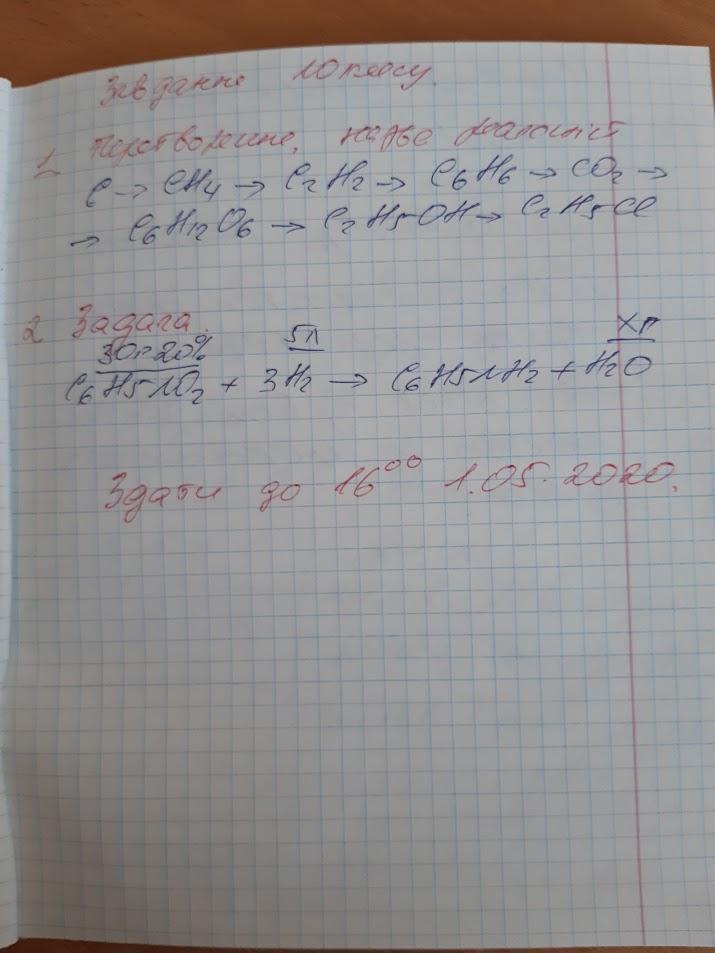 Завдання 10 класу.
1 Перетворення, назве реагенів
C → CH₄ → C₂H₂ → C₆H₆ → CO₂ →
→ C₆H₁₂O₆ → C₂H₅OH → C₂H₅Cl
2 Задача.
30г 20% 5л Xг
C₆H₅NO₂ + 3H₂ → C₆H₅NH₂ + H₂O
Здати до 16⁰⁰ 1.05.2020.